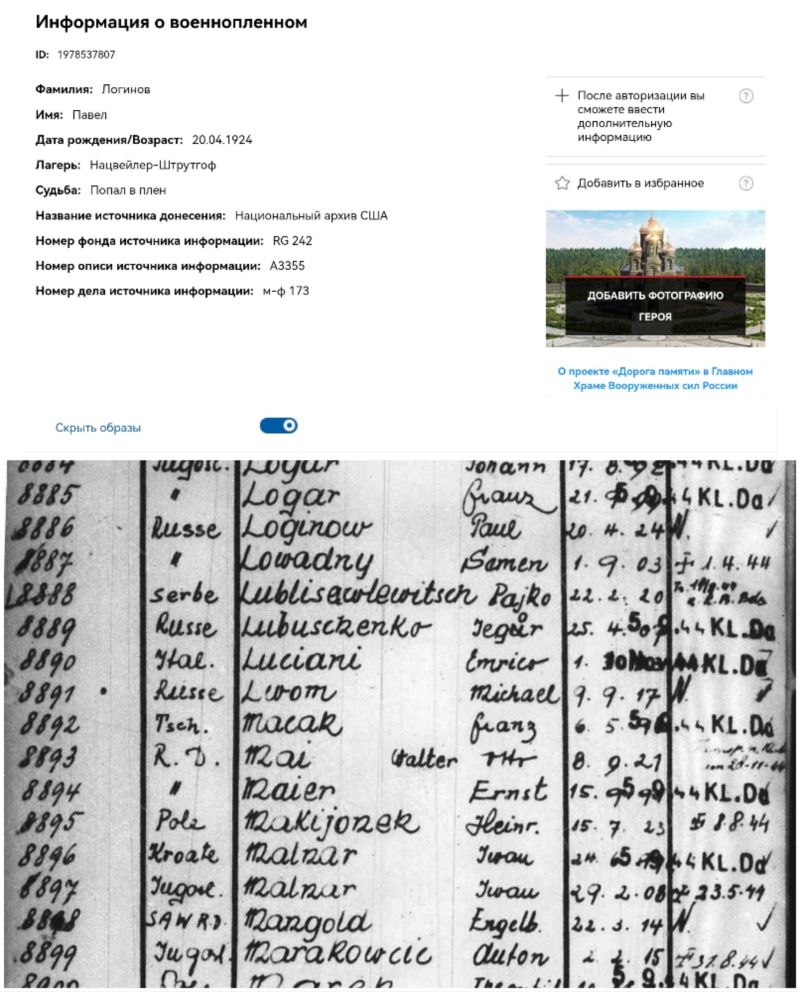 Информация о военнопленном
ID: 1978537807
Фамилия: Логинов
Имя: Павел
Дата рождения/Возраст: 20.04.1924
Лагерь: Нацвейлер-Штрутгоф
Судьба: Попал в плен
Название источника донесения: Национальный архив США
Номер фонда источника информации: RG 242
Номер описи источника информации: A3355
Номер дела источника информации: м-ф 173
После авторизации вы
сможете ввести
дополнительную
информацию
?
Добавить в избранное
?
ДОБАВИТЬ ФОТОГРАФИЮ
ГЕРОЯ
О проекте «Дорога памяти» в Главном
Храме Вооруженных сил России
Скрыть образы
8884 Jugosl. Logar Johann 17. 8. 44 KL.Da
8885 " Logar Franz 21. 9. 44 KL.Da
8886 Russe Loginow Paul 20. 4. 24 N.
8887 " Lowadny Semen 1. 9. 03 1.4.44
8888 Serbe Pajko 22. 2. 20
8889 Russe Lubuschenko 25. 4. 44 KL.Da
8890 Ital. Luciani Enrico 1. 44 KL.Da
8891 Russe Lwom Michael 9. 9. 17 N.
8892 Tsch. Macak Franz 6. 5. 44 KL.Da
8893 R.D. Mai Walter 8. 9. 21
8894 " Maier Ernst 15. 9. 44 KL.Da
8895 Pole Makijonek Heinr. 15. 7. 23 8.8.44
8896 Kroate Malnar Iwan 24. 44 KL.Da
8897 Jugosl. Malnar Iwan 29. 2. 08 23.5.44
8898 Mangold Engelb. 22. 3. 14 N.
8899 Jugosl. Marakowcic Anton 15 8.44